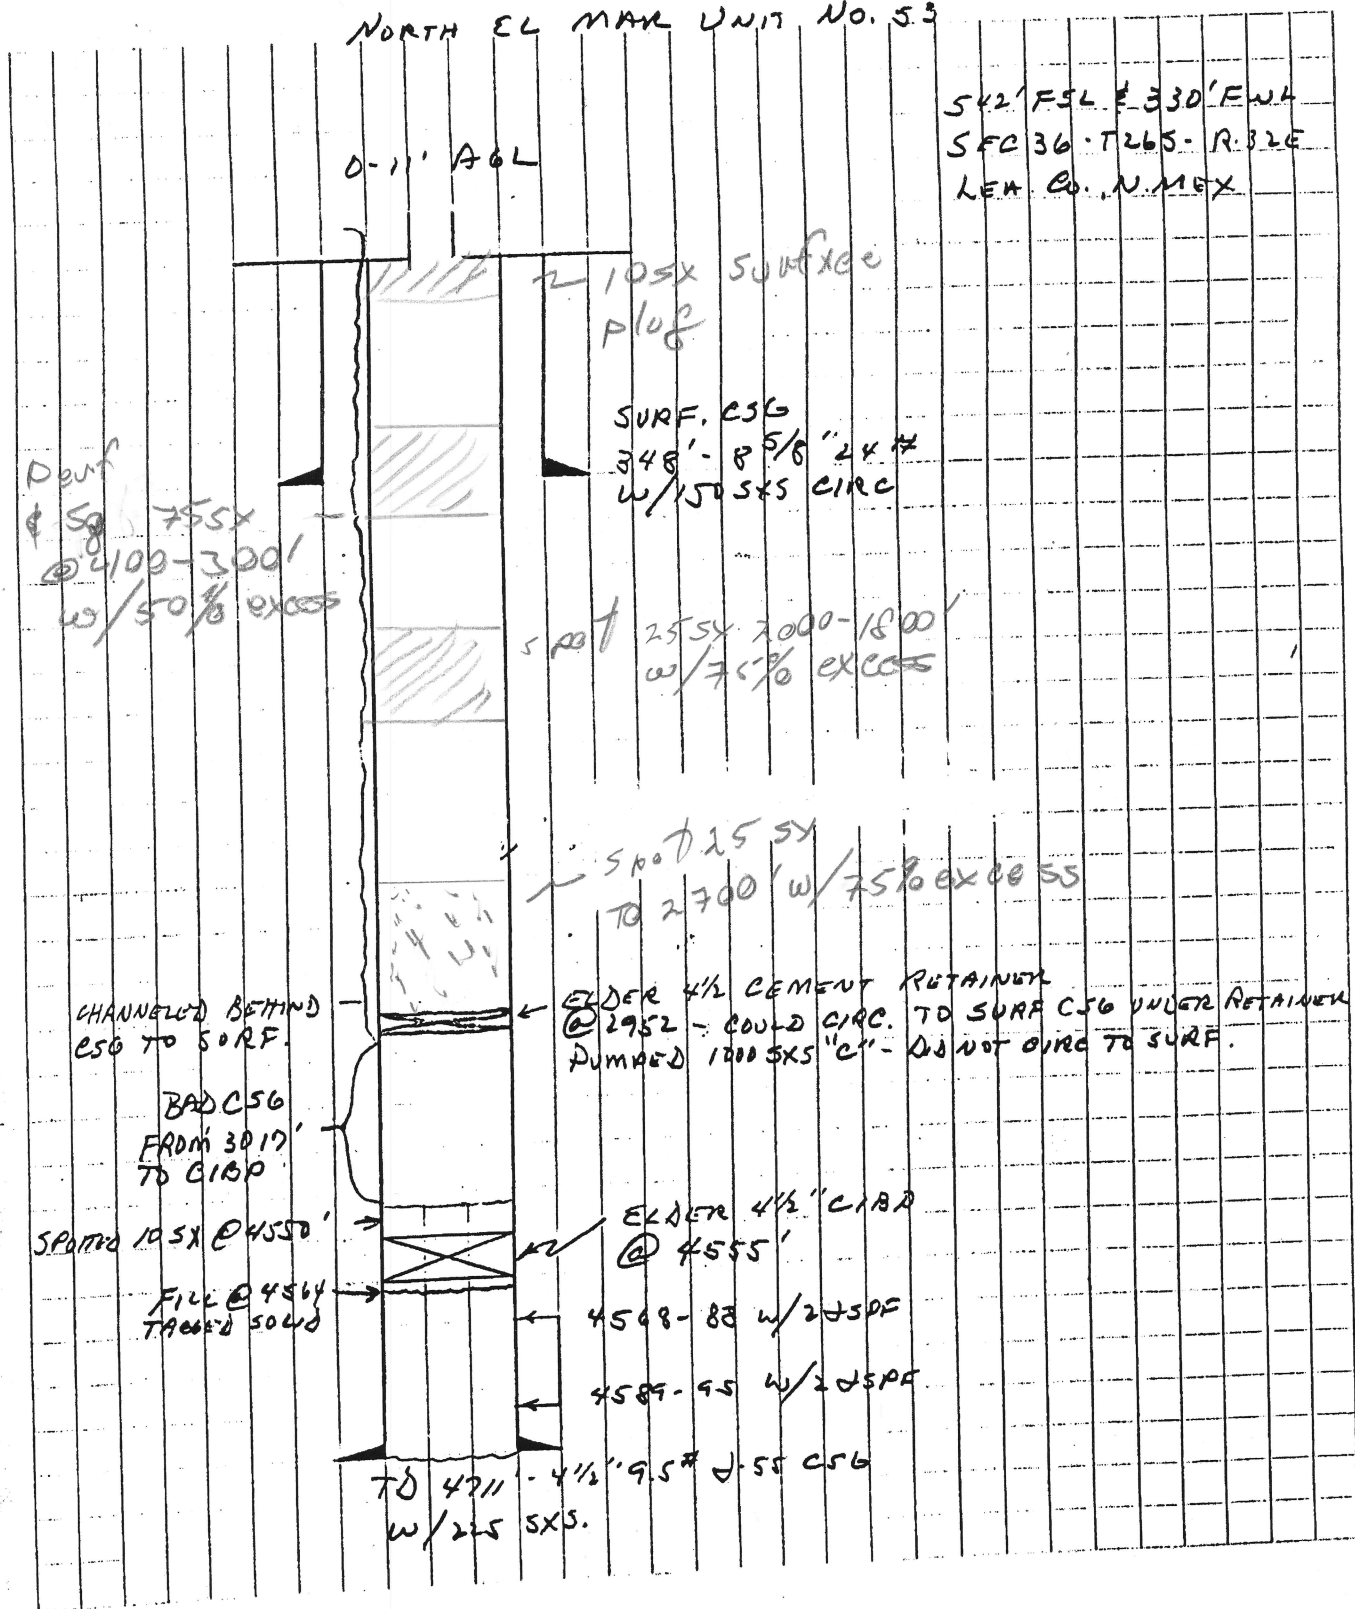 NORTH EL MAR UNIT NO. 53
542' FSL & 330' FWL
SEC 36 · T26S - R.32E
LEA CO., N. MEX
0-11' AGL
10sx Surface
plug
SURF. CSG
348' - 8 5/8" 24#
W/150 SXS CIRC
Perf
& Sq 75sx
@ 400-300'
w/50% excess
spot 25sx 2000-1800'
w/75% excess
spot 25 sx
TO 2700' w/75% excess
CHANNELED BEHIND
CSG TO SURF.
ELDER 4½ CEMENT RETAINER
@ 2952 - COULD CIRC. TO SURF CSG UNDER RETAINER
PUMPED 1000 SXS "C" - DID NOT CIRC TO SURF.
BAD CSG
FROM 3017'
TO CIBP
SPOTTED 10 SX @ 4550'
ELDER 4½" CIBP
@ 4555'
FILL @ 4564
TAGGED SOLID
4568-88 w/2 JSPF
4589-95 w/2 JSPF
TD 4711' - 4½" 9.5# J-55 CSG
w/225 SXS.